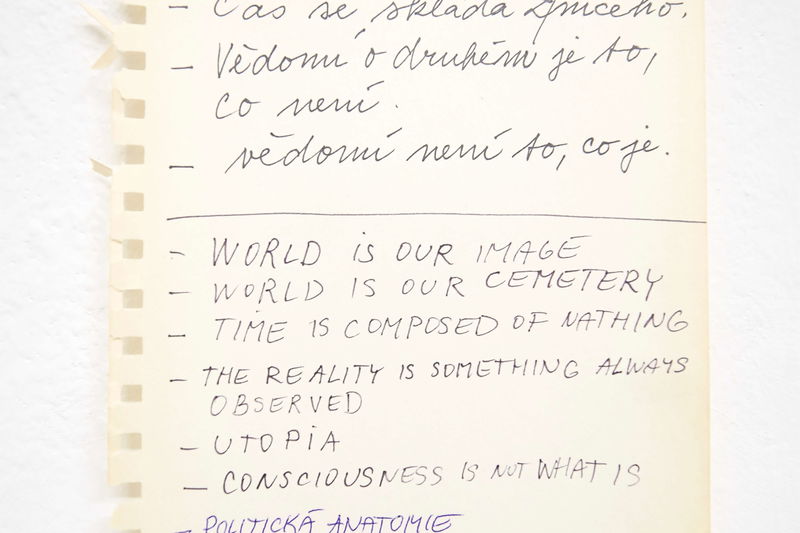 - Čas se skládá z ničeho.
- Vědomí o druhém je to,
co není.
- vědomí není to, co je.
- WORLD IS OUR IMAGE
- WORLD IS OUR CEMETERY
- TIME IS COMPOSED OF NATHING
- THE REALITY IS SOMETHING ALWAYS
OBSERVED
- UTOPIA
- CONSCIOUSNESS IS NOT WHAT IS
- POLITICKÁ ANATOMIE